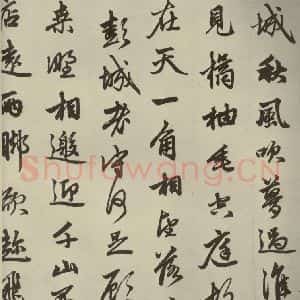 城秋風吹夢過淮
見橘柚垂空庭故
在天一角相望落
彭城老守何足顧
桑野相邀迎千山不
店遠兩脚欲趁飛
Shufawang.CN